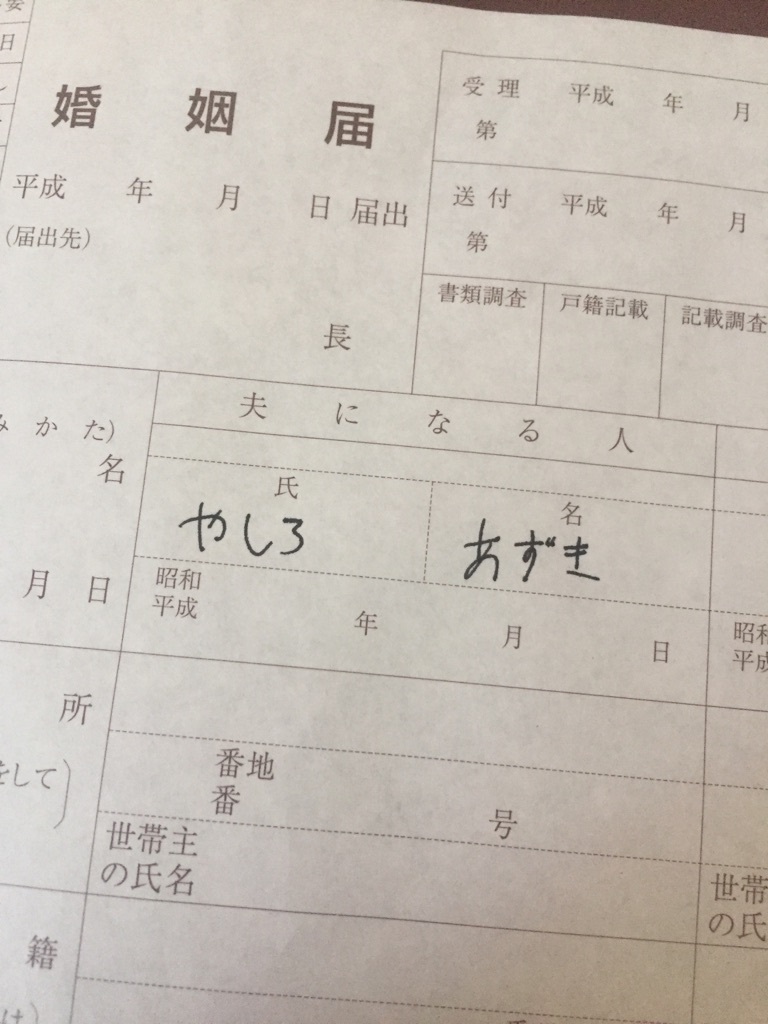 日
婚姻届
平成 年 月 日 届出
(届出先)
長
受理 平成 年 月
第
送付 平成 年 月
第
書類調査 戸籍記載 記載調査
みかた)
夫になる人
名
氏 名
やしろ あずき
月 日
昭和
平成
年 月 日
昭和
平成
所
をして
番地
番 号
世帯主
の氏名
世帯
の氏
籍